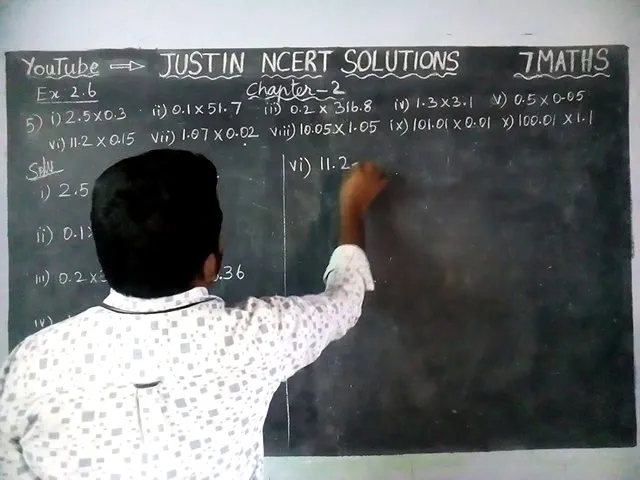 YouTube ⇒ JUSTIN NCERT SOLUTIONS 7 MATHS
Ex 2.6 Chapter-2
5) i) 2.5 x 0.3 ii) 0.1 x 51.7 iii) 0.2 x 316.8 iv) 1.3 x 3.1 v) 0.5 x 0.05
vi) 11.2 x 0.15 vii) 1.07 x 0.02 viii) 10.05 x 1.05 ix) 101.01 x 0.01 x) 100.01 x 1.1
Soln
i) 2.5
ii) 0.1
iii) 0.2 x 3 .36
iv)
vi) 11.2